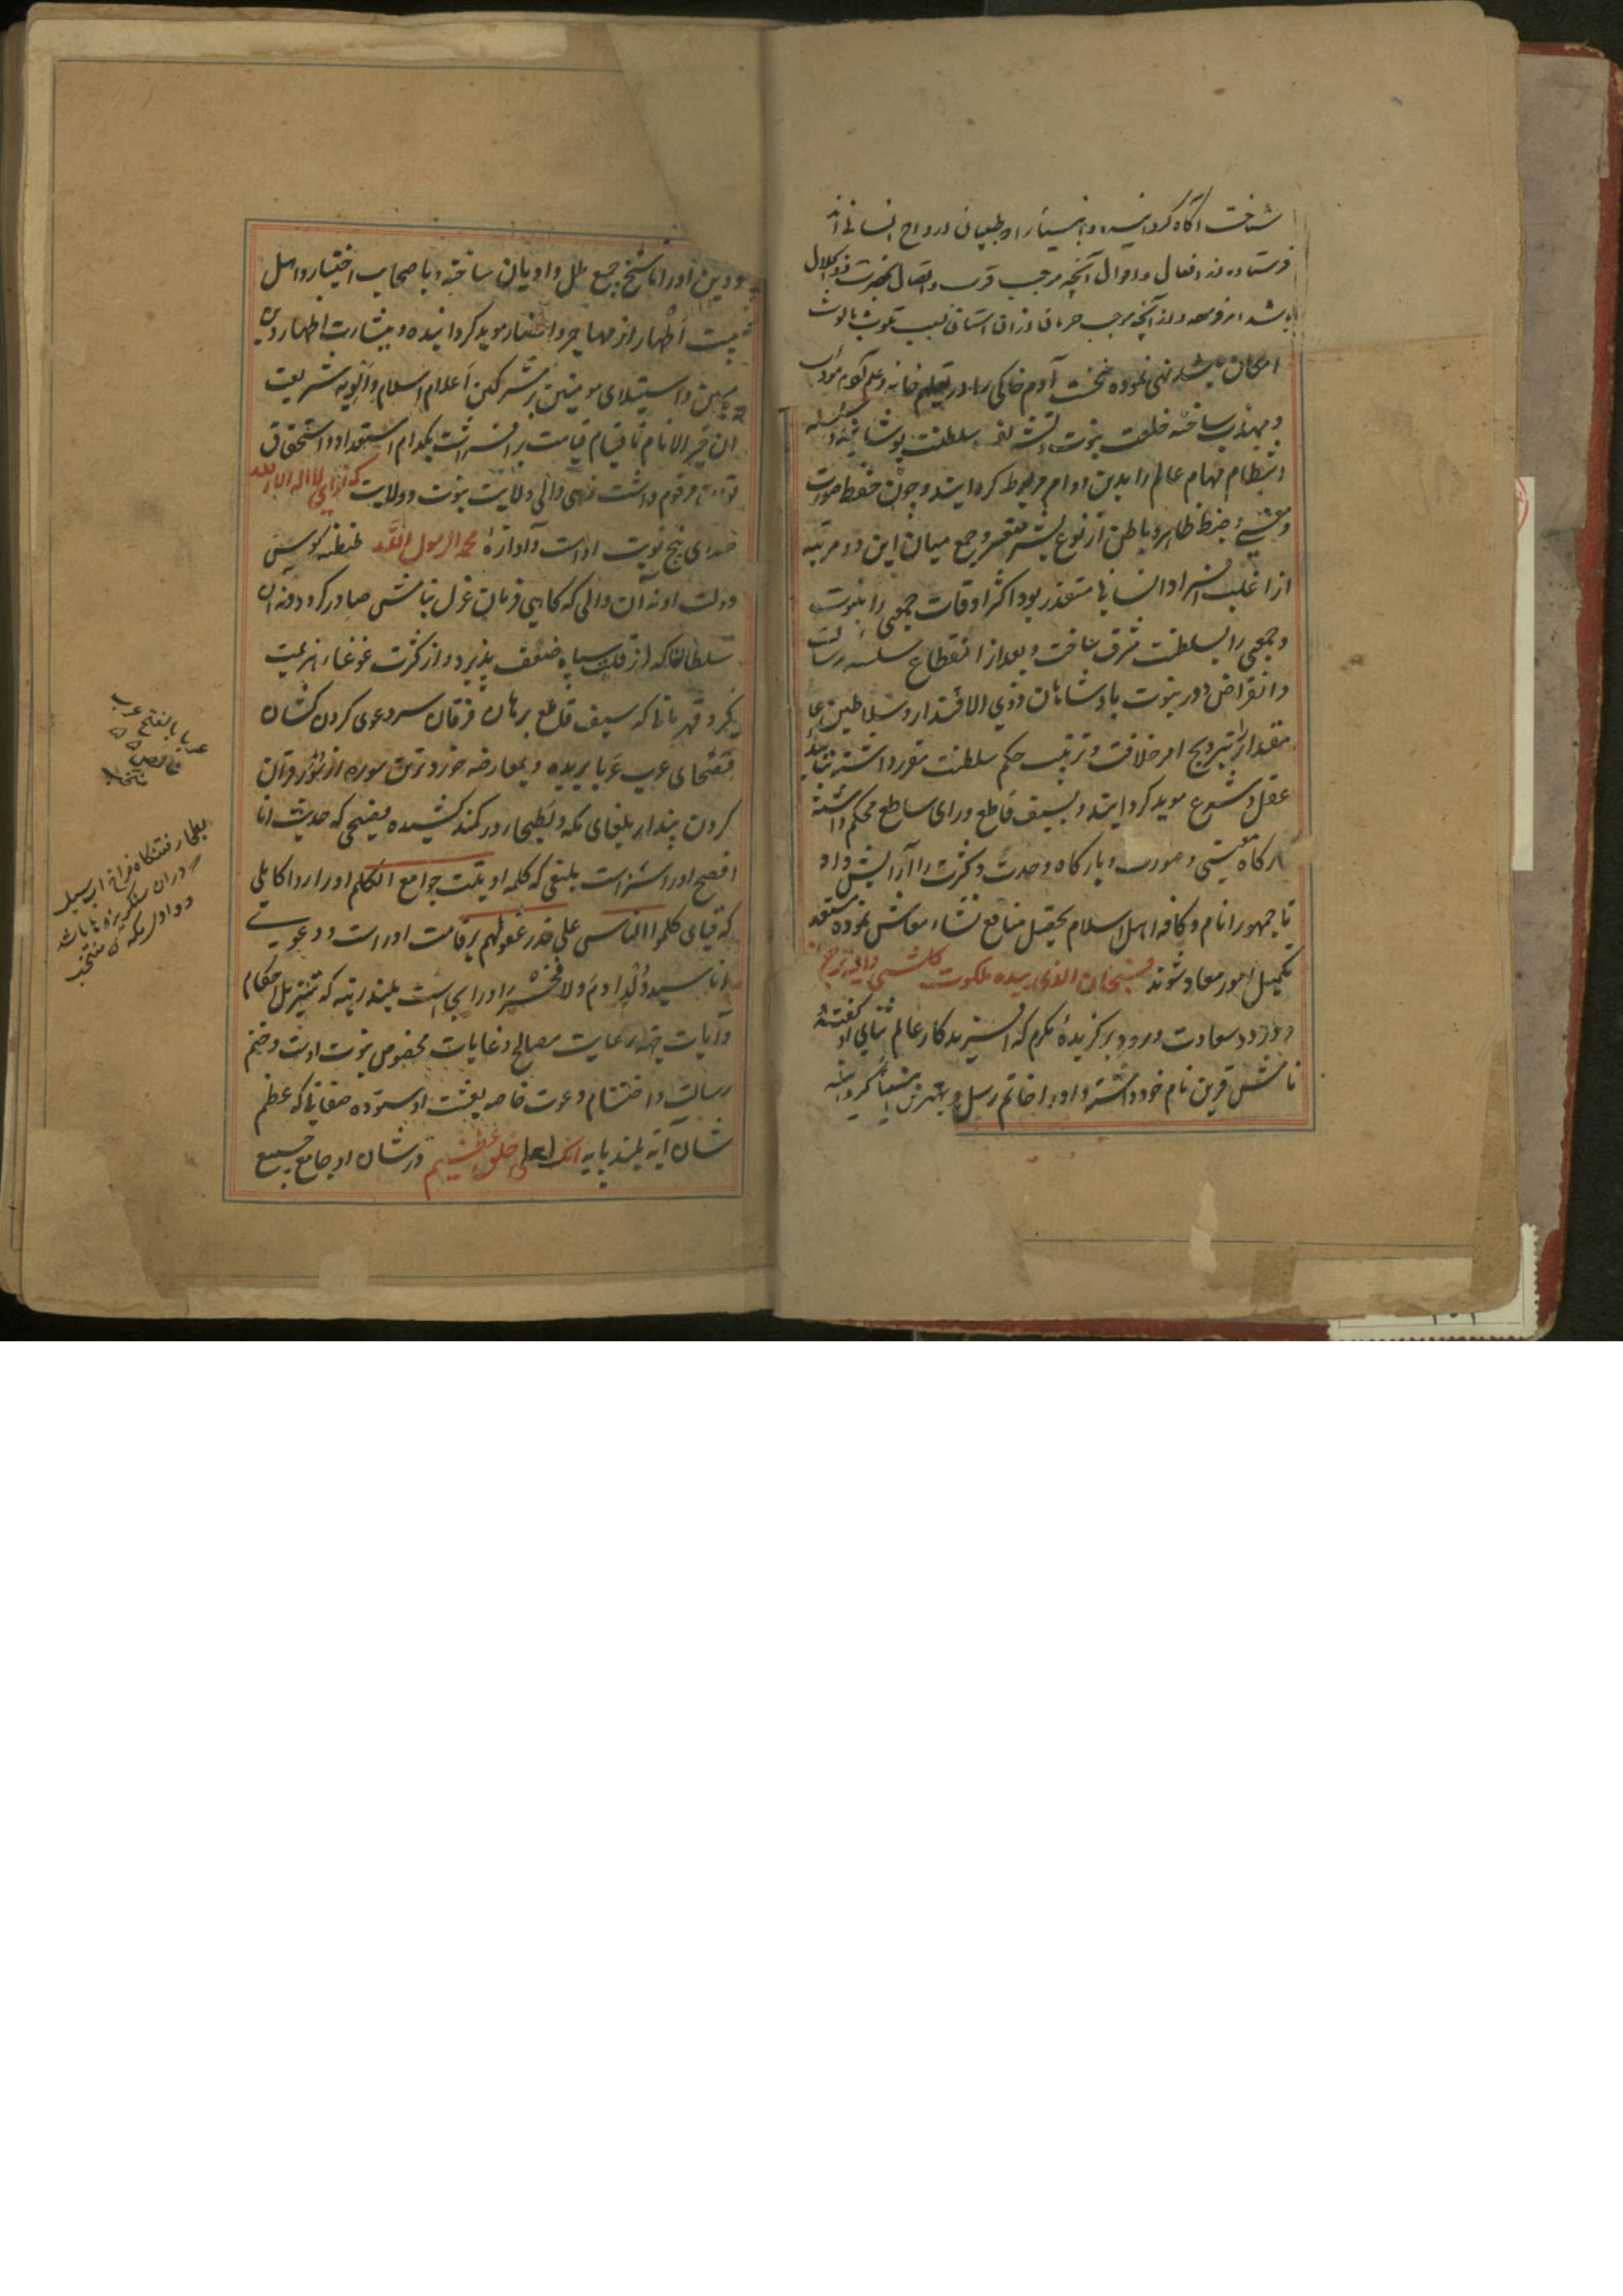 شناخت آگاه گردانیده و انبیا را و طبیبان ارواح انسانی اند
فرستاده از افعال و اقوال آنچه موجب قرب و اتصال حضرت ذو الجلال
باشد امر فرموده و از آنچه موجب حرمان از ان آستان بسبب تلوث بالواث
امکان باشد نهی نموده نخست آدم خاکی را در تعلیم خانه و علم آدم مودب
و مهذب ساخته خلعت نبوت سلطنت پوشانیده
انتظام مهام عالم را بدین دوام مربوط گردانید و چون حفظ صورت
و معنی و ضبط ظاهر و باطن از نوع بشر متعسر و جمع میان این دو مرتبه
از اغلب افراد انسانی متعذر بود اکثر اوقات جمعی را بنبوت
و جمعی را بسلطنت شرف ساخت و بعد از انقطاع سلسله رسالت
و انقراض دور نبوت بادشاهان ذوی الاقتدار و سلاطین عا
مقدار را بترویج امر خلافت و ترتیب حکم سلطنت مقرر داشته بتائید
عقل و شرع موید گردانید و بسیف قاطع و رای ساطع محکم داشته
بارگاه معنی و صورت و بارگاه وحدت و کثرت را آرایش داد
تا جمهور انام و کافه اهل اسلام بتحصیل منافع نشاء معاش نموده مستعد
تکمیل امور معاد شوند فسبحان الذی بیده ملکوت کل شی و الیه ترجعون
درود سعادت ورود بر گزیدهٔ مکرم که آفریدگار عالم ثنای او گفته
نامش قرین نام خود داشته و او را خاتم رسل و بهترین انبیا گردانیده
و دین او را ناسخ جمیع ملل و ادیان ساخته و باصحاب اختیار و اهل
بیت اطهار از مهاجر و انصار موید گردانیده و ببشارت اظهار دین
مبین و استیلای مومنین بر مشرکین اعلام اسلام و الویه شریعت
ان خیر الانام تا قیام قیامت بر افراشت بکدام استعداد و استحقاق
مرقوم داشت زهی والی ولایت نبوت و ولایت که نوای لا اله الا الله
صدای پنج نوبت اوست و آوازهٔ محمد الرسول الله طنطنه کوس
دولت او نه آن والی که گاهی فرمان عزل بنامش صادر گردد و نه آن
سلطان که از قلت سپاه ضعف پذیرد و از کثرت غوغا هزیمت
گیرد قهرمانی که سیف قاطع برهان فرقان سر دعوی گردن کشان
فصحای عرب عربا بریده و بمعارضه خورد ترین سوره از سور قرآن
گردن پندار بلغای مکه و بطحا در کمند کشیده فصیحی که حدیث انا
افصح او را سزاست بلیغی که کلمه اوتیت جوامع الکلم او را روا کاملی
که قبای کلموا الناس علی قدر عقولهم بر قامت اوراست و دعوی
انا سید ولد آدم ولا فخر اورا بجاست بلند رتبه که تنزیل احکام
و آیات جهة رعایت مصالح و غایات مخصوص نبوت اوست و ختم
رسالت و اختتام دعوت خاصه بعثت او ستوده صفاتی که عظم
شان آیه بلند پایه انک لعلی خلق عظیم در شان او جامع جمیع
عربا بالفتح عرب
خالص
منتخب
بطحا رفتنگاه فراخ آب سیل
که در ان سنگریزه ها باشد
و وادی مکه منتخب